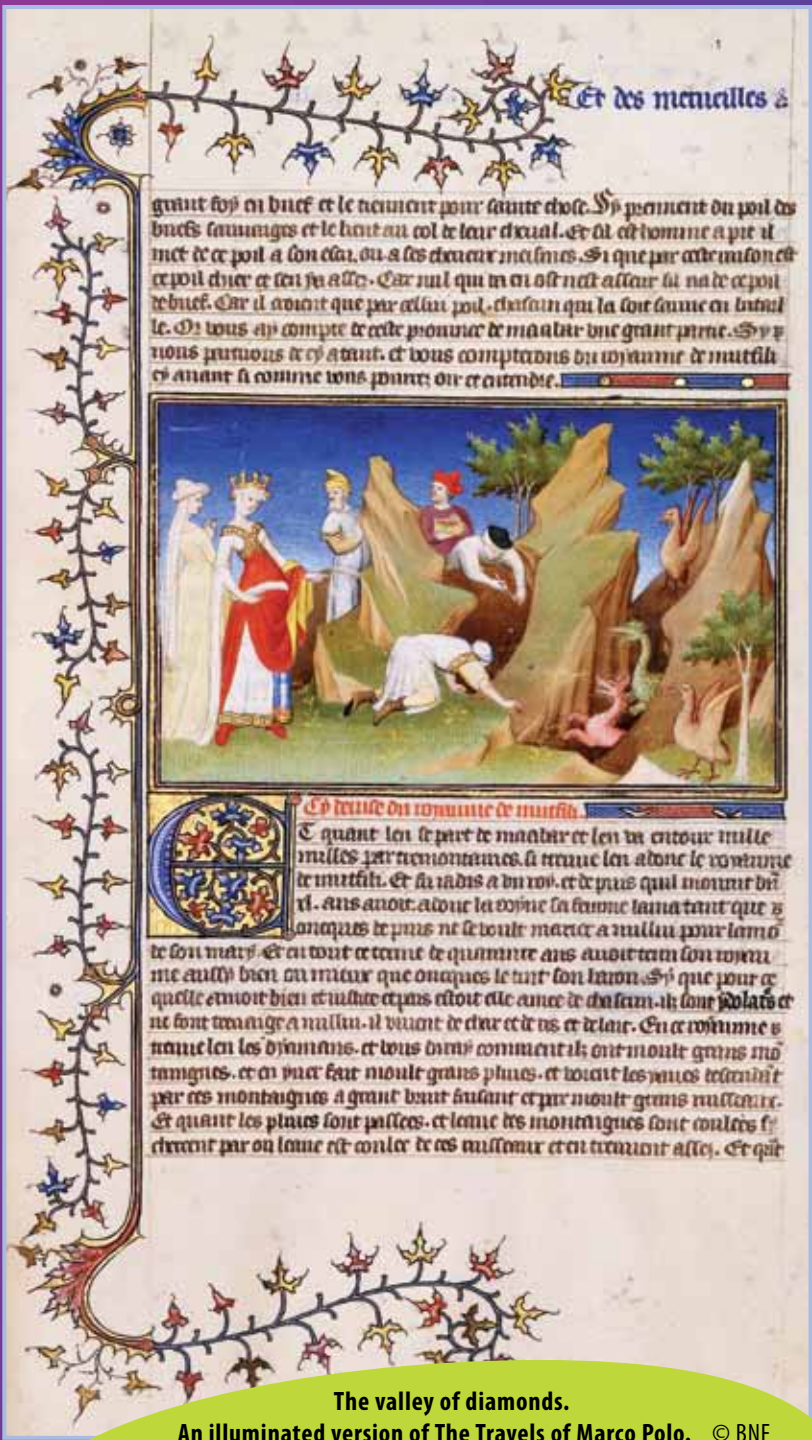 Et des merueilles &
grant foy en buef et le tiennent pour sainte chose. Sy prennent du poil des
buefs sauuaiges et le lient au col de leur cheual. Et sil est homme a pie il
met de ce poil a son escu. ou a ses cheueux meismes. Si que par ceste raison est
ce poil chier et sen va assez. Car nul qui va en ost nest asseur sil na de ce poil
de buef. Car il croient que par cellui poil. chascun qui la soit sauue en batail
le. Or vous ay compte de ceste prouince de maabar vne grant partie. Sy
nous partirons de cy atant. et vous compterons du royaume de mutfili
cy auant si comme vous pourrez oir et entendre.
Cy deuise du royaume de mutfili.
Et quant len se part de maabar et len va entour mille
milles par tremontaines. si treuue len adonc le royaume
de mutfili. Et fu iadis a vn roy. et de puis quil mourut bñ
xl. ans auoit. adonc la royne sa femme lama tant que
oncques de puis ne se voult marier a nullui pour lamo
de son mary. Et en tout ce terme de quarante ans auoit tenu son royau
me aussy bien ou mieux que oncques le tint son baron. Sy que pour ce
quelle amoit bien et iustice et pais estoit elle amee de chascun. ilz sont ydolatres et
ne font treuaige a nullui. il viuent de char et de ris et de lait. En ce royaume
treuue len les dyamans. et vous diray comment ilz ont moult grans mō
taingnes. et en yuer fait moult grans pluies. et voient les yaues descendāt
par ces montaignes a grant bruit faisant et par moult grans ruisseaux.
Et quant les pluies sont passees. et leaue des montaignes sont coulees sy
cherent par ou leaue est coulee de ces ruisseaux et en treuuent assez. Et quāt
The valley of diamonds.
An illuminated version of The Travels of Marco Polo. © BNF